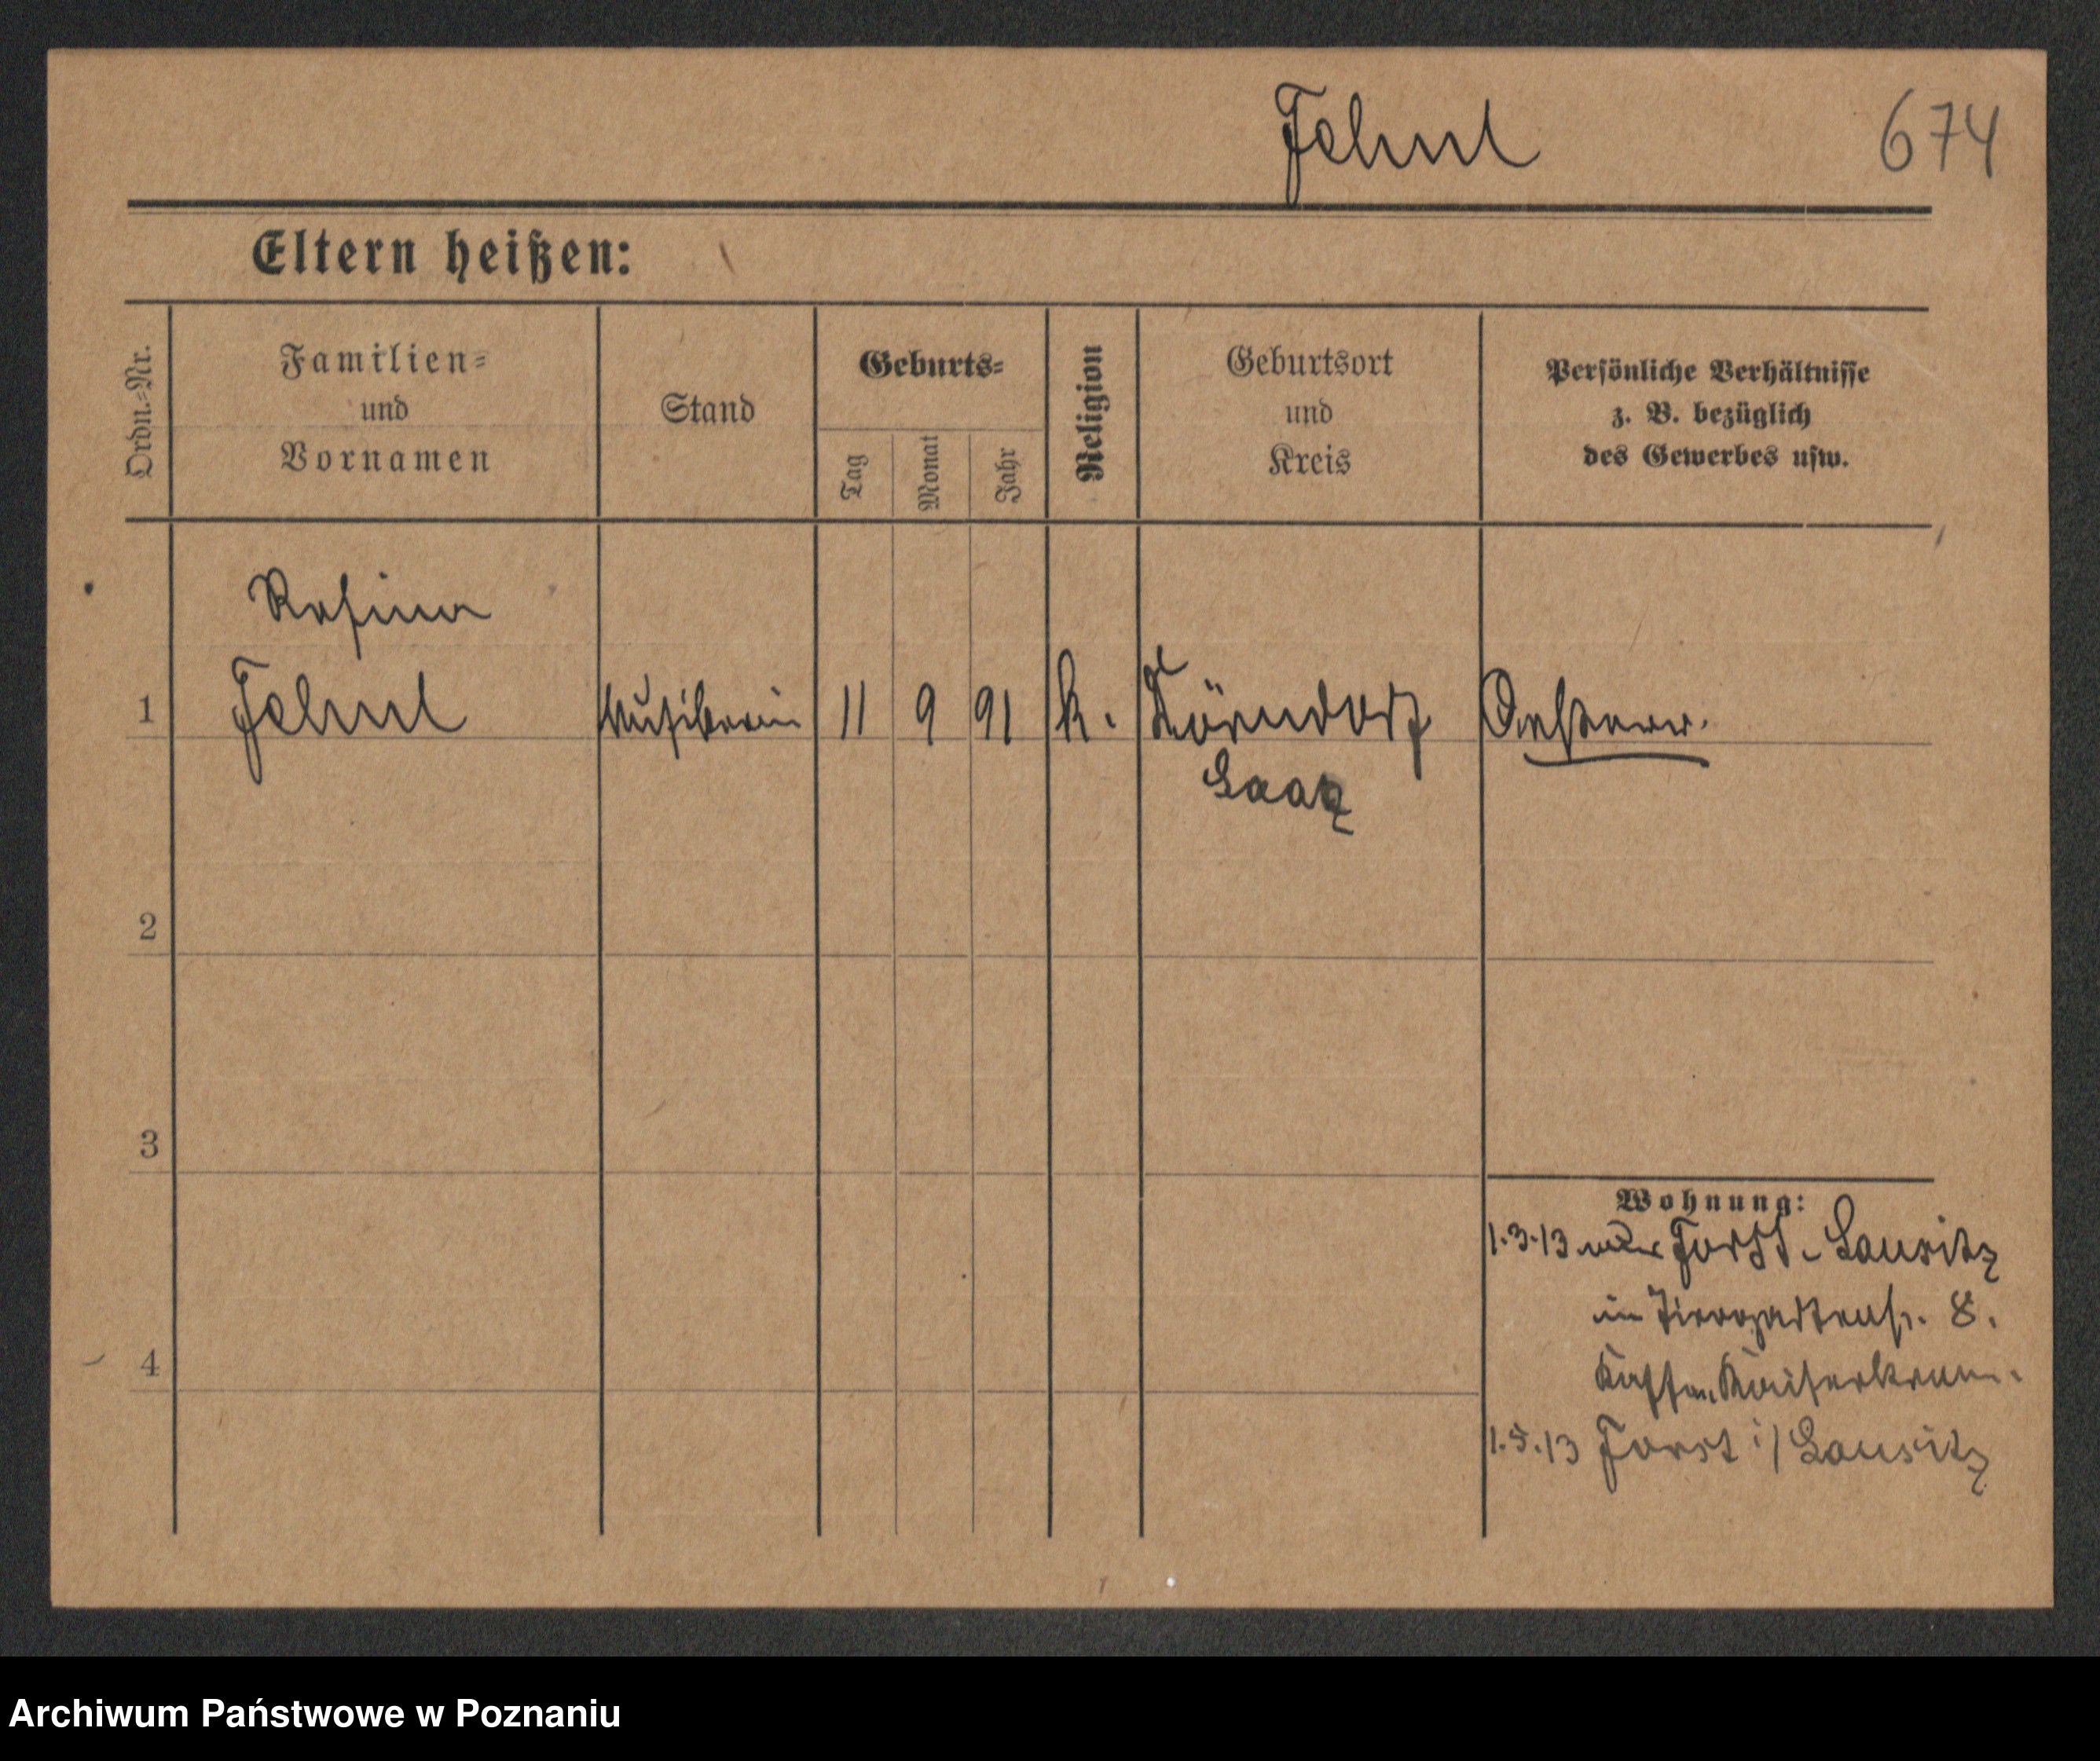 Fehnl 674
Eltern heißen:
Ordn.-Nr.
Familien-
und
Vornamen
Stand
Geburts-
Tag
Monat
Jahr
Religion
Geburtsort
und
Kreis
Persönliche Verhältnisse
z. B. bezüglich
des Gewerbes usw.
Rosina
1 Fehnl Musikerin 11 9 91 k. Dörndorf Oesterr.
Saaz
2
3
Wohnung:
1.3.13 Forst-Lausitz
in Tiergartenstr. 8.
4
Kaiserkron.
1.5.13 Forst i/Lausitz
Archiwum Państwowe w Poznaniu